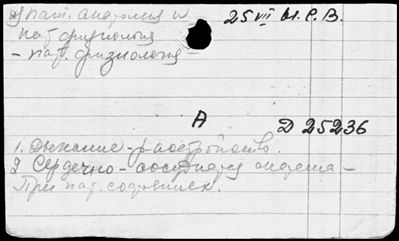 пат. анатомия и 25 VII М. Р. В.
пат физиология
– пат. физиология
А Д 25236
1. Дыхание – расстройство.
2 Сердечно – сосудистая система –
При пат. состояниях.